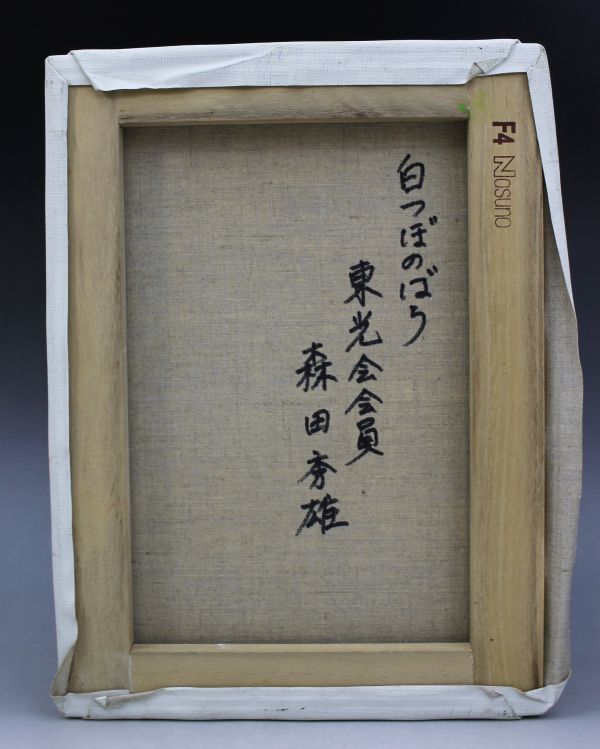 白つぼのばら
東光会会員
森田秀雄
F4 Nosuno